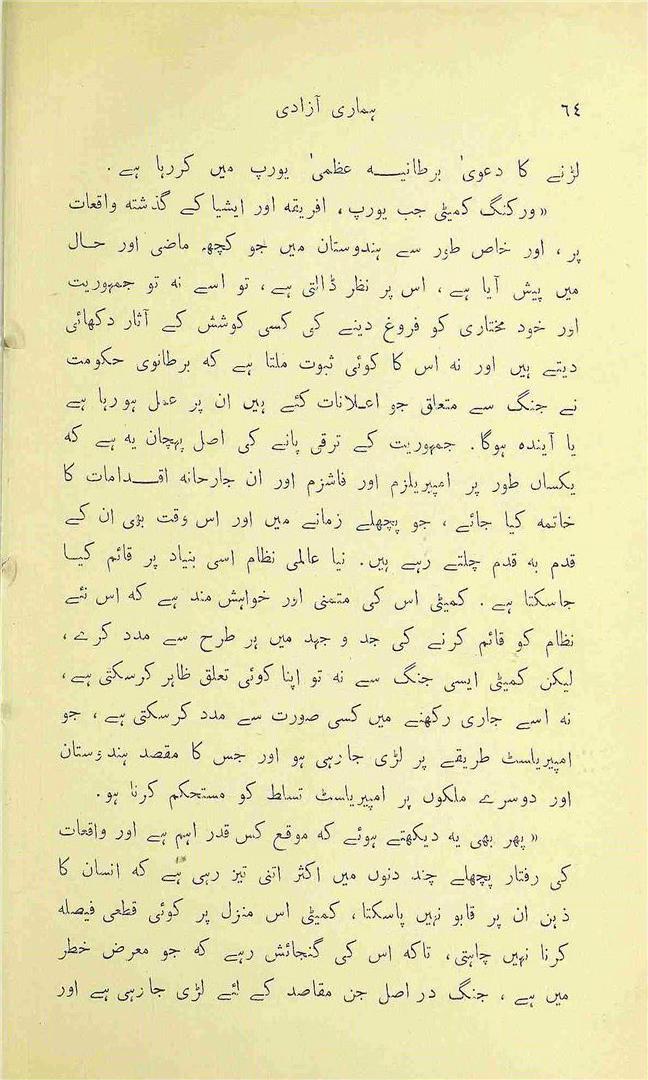 ہماری آزادی ٦٤
لڑنے کا دعویٰ برطانیہ عظمیٰ یورپ میں کررہا ہے .
« ورکنگ کمیٹی جب یورپ ، افریقہ اور ایشیا کے گذشتہ واقعات
پر ، اور خاص طور سے ہندوستان میں جو کچھ ماضی اور حال
میں پیش آیا ہے ، اس پر نظر ڈالتی ہے ، تو اسے نہ تو جمہوریت
اور خود مختاری کو فروغ دینے کی کسی کوشش کے آثار دکھائی
دیتے ہیں اور نہ اس کا کوئی ثبوت ملتا ہے کہ برطانوی حکومت
نے جنگ سے متعلق جو اعلانات کئے ہیں ان پر عمل ہورہا ہے
یا آیندہ ہوگا . جمہوریت کے ترقی پانے کی اصل پہچان یہ ہے کہ
یکساں طور پر امپیریلزم اور فاشزم اور ان جارحانہ اقدامات کا
خاتمہ کیا جائے ، جو پچھلے زمانے میں اور اس وقت بھی ان کے
قدم بہ قدم چلتے رہے ہیں . نیا عالمی نظام اسی بنیاد پر قائم کیا
جاسکتا ہے . کمیٹی اس کی متمنی اور خواہش مند ہے کہ اس نئے
نظام کو قائم کرنے کی جد و جہد میں ہر طرح سے مدد کرے ،
لیکن کمیٹی ایسی جنگ سے نہ تو اپنا کوئی تعلق ظاہر کرسکتی ہے ،
نہ اسے جاری رکھنے میں کسی صورت سے مدد کرسکتی ہے ، جو
امپیریلسٹ طریقے پر لڑی جارہی ہو اور جس کا مقصد ہندوستان
اور دوسرے ملکوں پر امپیریلسٹ تساط کو مستحکم کرنا ہو .
« پھر بھی یہ دیکھتے ہوئے کہ موقع کس قدر اہم ہے اور واقعات
کی رفتار پچھلے چند دنوں میں اکثر اتنی تیز رہی ہے کہ انسان کا
ذہن ان پر قابو نہیں پاسکتا ، کمیٹی اس منزل پر کوئی قطعی فیصلہ
کرنا نہیں چاہتی ، تاکہ اس کی گنجائش رہے کہ جو معرض خطر
میں ہے ، جنگ در اصل جن مقاصد کے لئے لڑی جارہی ہے اور